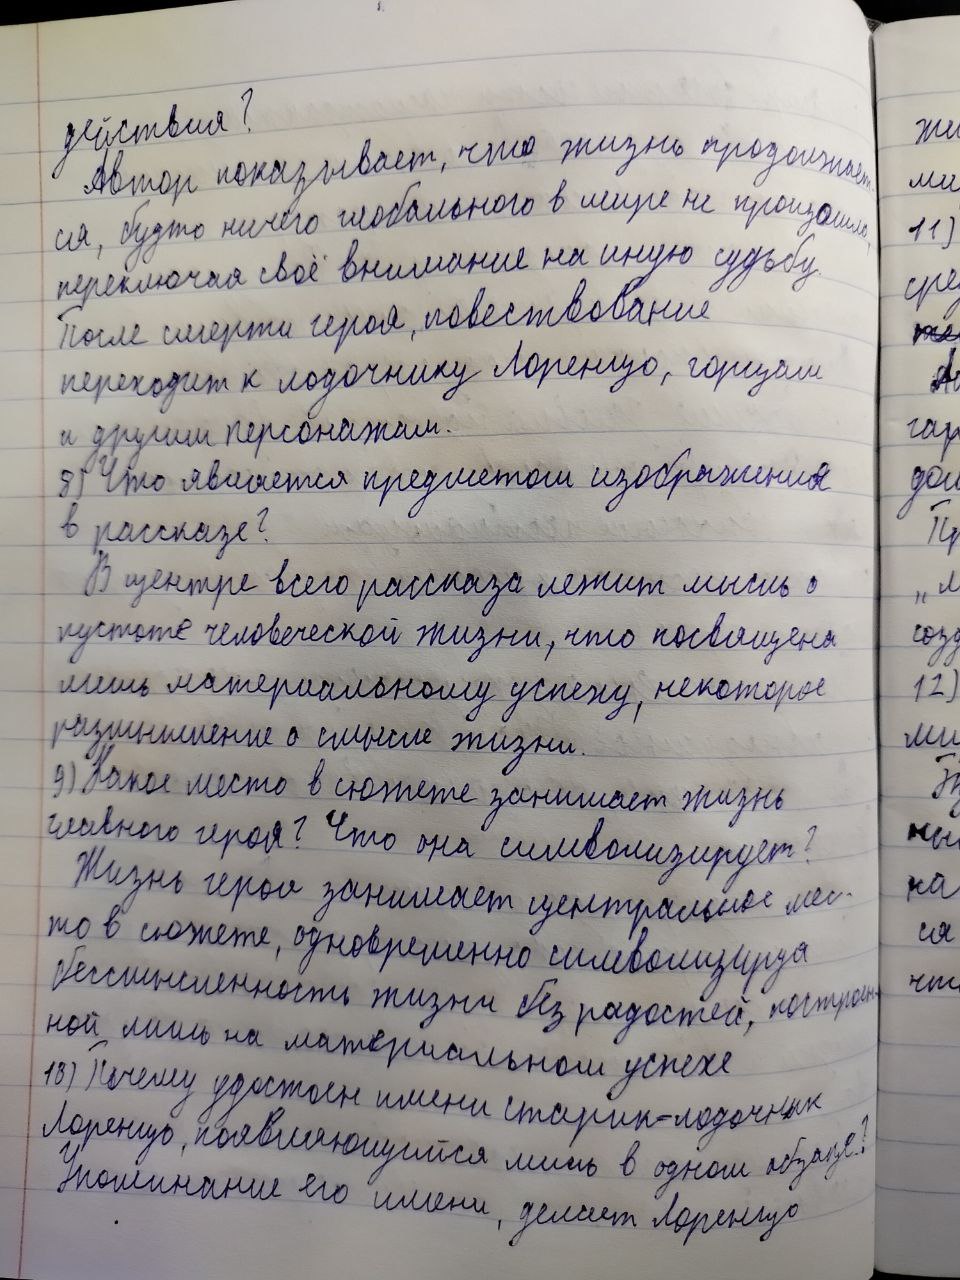 действия?
Автор показывает, что жизнь продолжает-
ся, будто ничего глобального в мире не произошло,
переключая своё внимание на иную судьбу.
После смерти героя, повествование
переходит к лодочнику Лоренцо, горцам
и другим персонажам.
8) Что является предметом изображения
в рассказе?
В центре всего рассказа лежит мысль о
пустоте человеческой жизни, что посвящена
лишь материальному успеху, некоторое
размышление о смысле жизни.
9) Какое место в сюжете занимает жизнь
главного героя? Что она символизирует?
Жизнь героя занимает центральное мес-
то в сюжете, одновременно символизируя
бессмысленность жизни без радостей, построен-
ной лишь на материальном успехе
10) Почему удостоен имени старик-лодочник
Лоренцо, появляющийся лишь в одном абзаце?
Упоминание его имени, делает Лоренцо
11)
12)